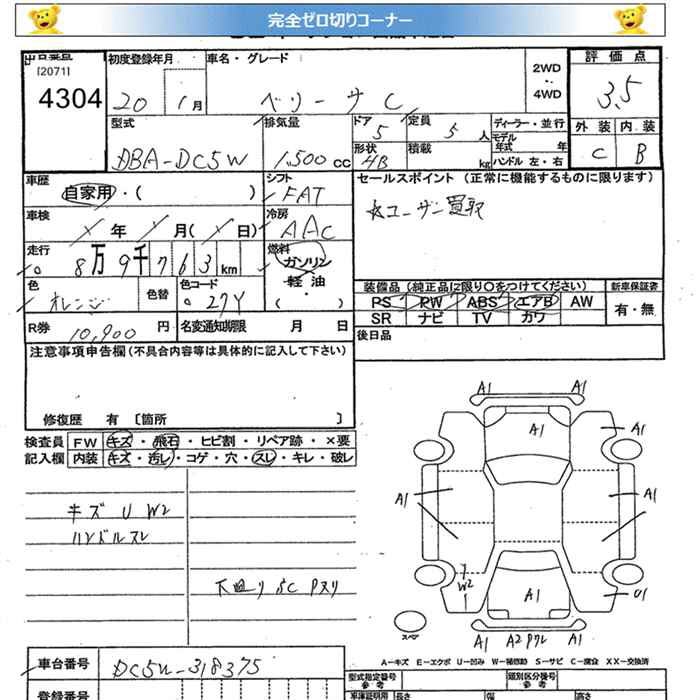 完全ゼロ切りコーナー
[2071]
4304
初度登録年月
車名・グレード
20 1月
ベリーサ C
2WD
・・
4WD
評価点
3.5
外装 内装
C B
型式
DBA-DC5W
排気量
1,500 cc
ドア
5
定員
5 人
ディーラー・並行
モデル年式 年
形状
4B
積載
kg
ハンドル 左・右
車歴
自家用・( )
シフト
FAT
セールスポイント (正常に機能するものに限ります)
☆ユーザー買取
車検
年 月( 日)
冷房
AAC
走行
8万9千763km
燃料
ガソリン
・
軽油
( )
色
オレンジ
色替
色コード
27Y
装備品(純正品に限り○をつけてください)
新車保証書
PS PW ABS エアB AW
有・無
SR ナビ TV カワ
R券
10,900円
名変通知期限 月 日
後日品
注意事項申告欄(不具合内容等は具体的に記入して下さい)
修復歴 有 〔箇所 〕
検査員
記入欄
FW キズ・飛石・ヒビ割・リペア跡・×要
内装 キズ・汚レ・コゲ・穴・スレ・キレ・破レ
キズ U W2
ハンドルスレ
下廻り SC Pヌリ
A1 A1
A1 A1
A1 A1
W2 A1 U1
スペア
A1 A2 Pワレ A1
A−キズ E−エクボ U−凹み W−補修跡 S−サビ C−腐食 XX−交換済
車台番号
DC5W-318375
登録番号
型式指定番号
参考
類別区分番号
参考
車庫証明用
長さ 幅 高さ